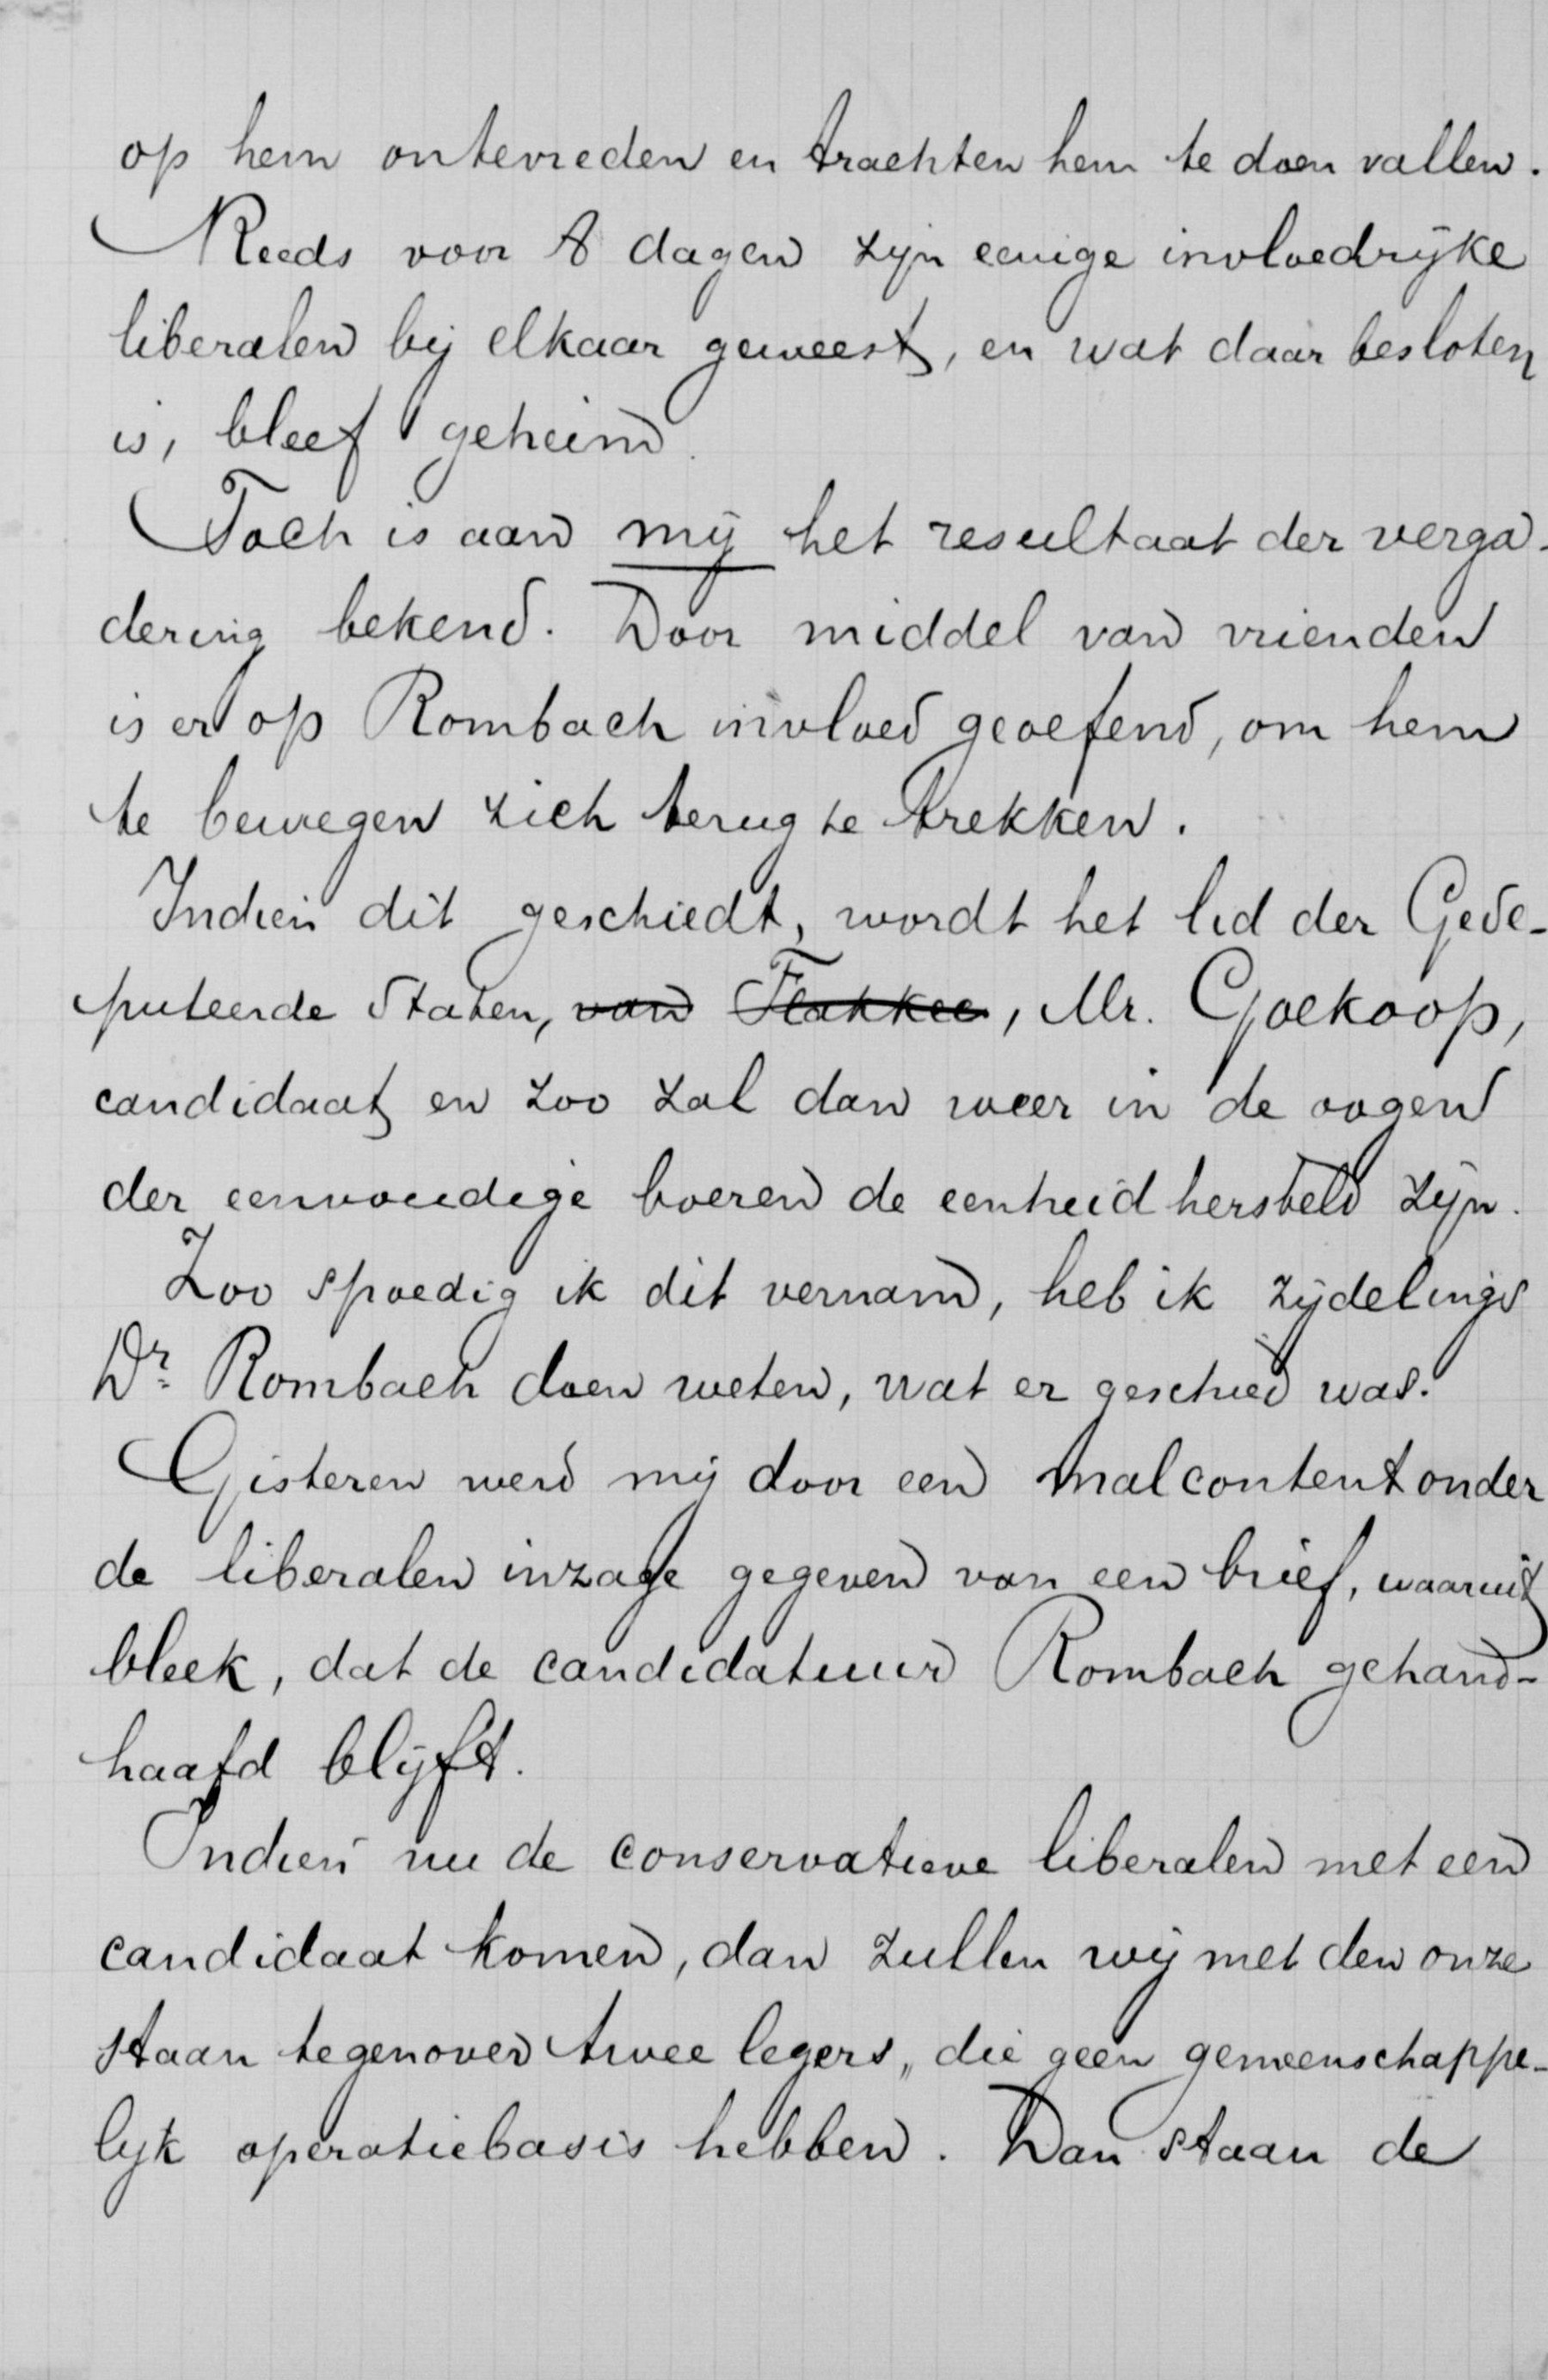 op hem ontevreden en trachten hem te doen vallen.
Reeds voor 8 dagen zijn eenige invloedrijke
liberalen bij elkaar geweest, en wat daar besloten
is, bleef geheim.
Toch is aan mij het resultaat der verga-
dering bekend. Door middel van vrienden
is er op Rombach invloed geoefend, om hem
te bewegen zich terug te trekken.
Indien dit geschiedt, wordt het lid der Gede-
puteerde Staten, van Flakkee, Mr. Goekoop,
candidaat en zoo zal dan weer in de oogen
der eenvoudige boeren de eenheid hersteld zijn.
Zoo spoedig ik dit vernam, heb ik zijdelings
Dr. Rombach doen weten, wat er geschied was.
Gisteren werd mij door een malcontent onder
de liberalen inzage gegeven van een brief, waaruit
bleek, dat de candidatuur Rombach gehand-
haafd blijft.
Indien nu de conservatieve liberalen met een
candidaat komen, dan zullen wij met den onze
staan tegenover twee legers, die geen gemeenschappe-
lijk operatiebasis hebben. Dan staan de